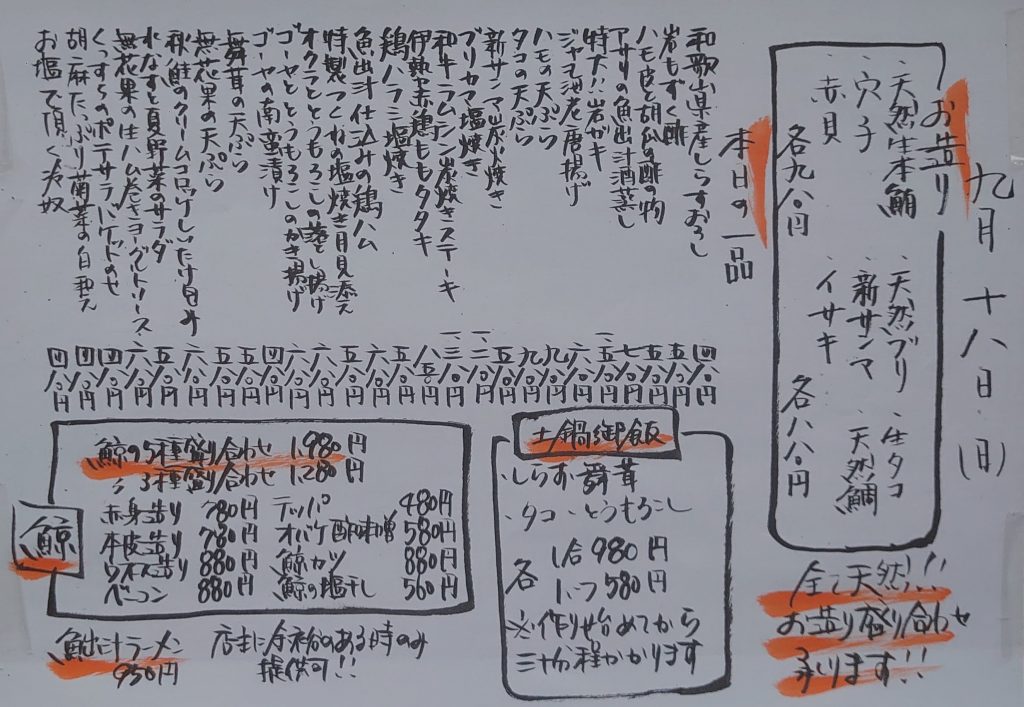 九月十八日(日)
お造り
・天然生本鮪
・穴子
・赤貝
各九八〇円
・天然ブリ・生タコ
・新サンマ・天然鯛
・イサキ
各八八〇円
全て天然!!
お造り盛り合わせ
承ります!!
本日の一品
和歌山県産しらすおろし 四八〇円
岩もずく酢 五八〇円
ハモ皮と胡瓜の酢の物 五八〇円
アサリの魚出汁酒蒸し 七八〇円
特大!岩ガキ
ジャコ海老唐揚げ 六八〇円
ハモの天ぷら 九八〇円
タコの天ぷら 九八〇円
新サンマ炭火焼き
ブリカマ塩焼き
和牛ラムシン炭焼きステーキ
伊勢赤鶏ももタタキ 八五〇円
鶏ハラミ塩焼き 五八〇円
魚出汁仕込みの鶏ハム 六八〇円
特製つくねの塩焼き月見添え 五八〇円
オクラととうもろこしの落とし揚げ 六八〇円
ゴーヤととうもろこしのかき揚げ 六八〇円
ゴーヤの南蛮漬け 四八〇円
舞茸の天ぷら 五八〇円
無花果の天ぷら 六八〇円
秋鮭のクリームコロッケしいたけ包み
水なすと夏野菜のサラダ
無花果の生ハム巻きヨーグルトソース
くつすらのポテサラバケットのせ 四八〇円
胡麻たっぷり菊菜の白和え 四八〇円
お塩で頂く冷奴 四八〇円
土鍋御飯
・しらす・舞茸
・タコ・とうもろこし
各 1合980円
1/2つ580円
※作り始めてから
三十分程かかります
鯨
鯨の5種盛り合わせ 1,980円
〃3種盛り合わせ 1,280円
赤身造り 780円
本皮造り 780円
ウネス造り 880円
ベーコン 880円
テッパ 480円
オバケ酢味噌 580円
鯨カツ 880円
鯨の塩干し 560円
魚出汁ラーメン
950円
店主に余裕のある時のみ
提供可!!